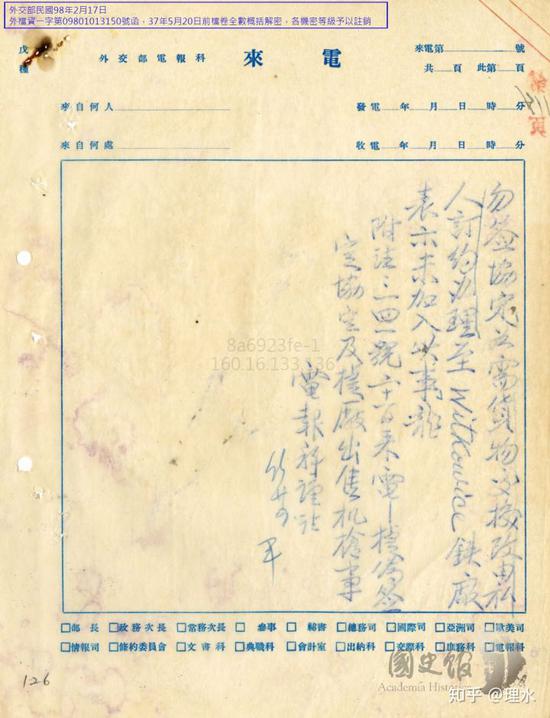 外交部民國98年2月17日
外檔資一字第09801013150號函，37年5月20日前檔卷全數概括解密，各機密等級予以註銷
戊種
外交部電報科
來電
來電第 號
共 頁 此第 頁
來自何人
發電 年 月 日 時 分
來自何處
收電 年 月 日 時 分
勿签協定只需貨物交換改由私
人訂約办理至Witkowice鉄廠
表示未加入其事
附注三四一號来電捷签
定協定及捷廠出售机槍事
電報科謹註
8a6923fe-1
160.16.133.136
□部長 □政務次長 □常務次長 □參事 □秘書 □總務司 □國際司 □亞洲司 □歐美司
□情報司 □條約委員會 □文書科 □典職科 □會計室 □出納科 □交際科 □庶務科 □電報科
126
國史館
Academia Historica
知乎 @理水